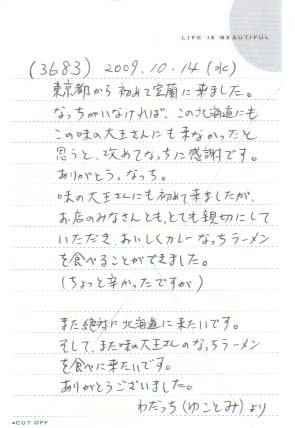 LIFE IS BEAUTIFUL
(3683) 2009.10.14(水)
東京都から初めて室蘭に来ました。
なっちがいなければ、この北海道にも
この味の大王さんにも来なかったと
思うと、改めてなっちに感謝です。
ありがとう。なっち。
味の大王さんにも初めて来ましたが、
お店のみなさんとも、とても親切にして
いただき、おいしくカレーなっちラーメン
を食べることができました。
(ちょっと辛かったですが)
また絶対に北海道に来たいです。
そして、また味の大王さんのなっちラーメン
を食べに来たいです。
ありがとうございました。
わだっち(ゆことみ)より
CUT OFF